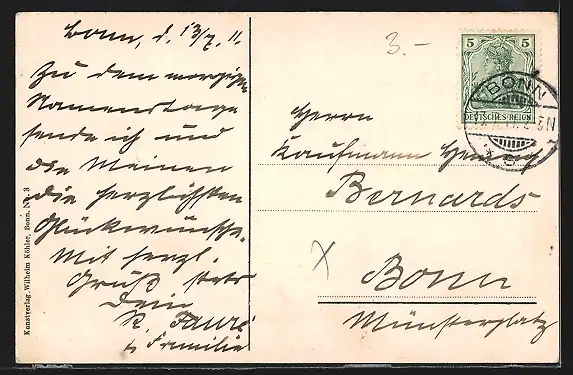 Bonn, d. 13/7. 11.
Zu dem morgigen
Namenstage
sende ich und
die Meinen
die herzlichsten
Glückwünsche.
Mit herzl.
Gruß stets
Dein
R. Fauré
& Familie
3.-
5 5
DEUTSCHES REICH
BONN
Herrn
Kaufmann Heinrich
Bernards
Bonn
Münsterplatz
Kunstverlag Wilhelm Köhler, Bonn. No. 3